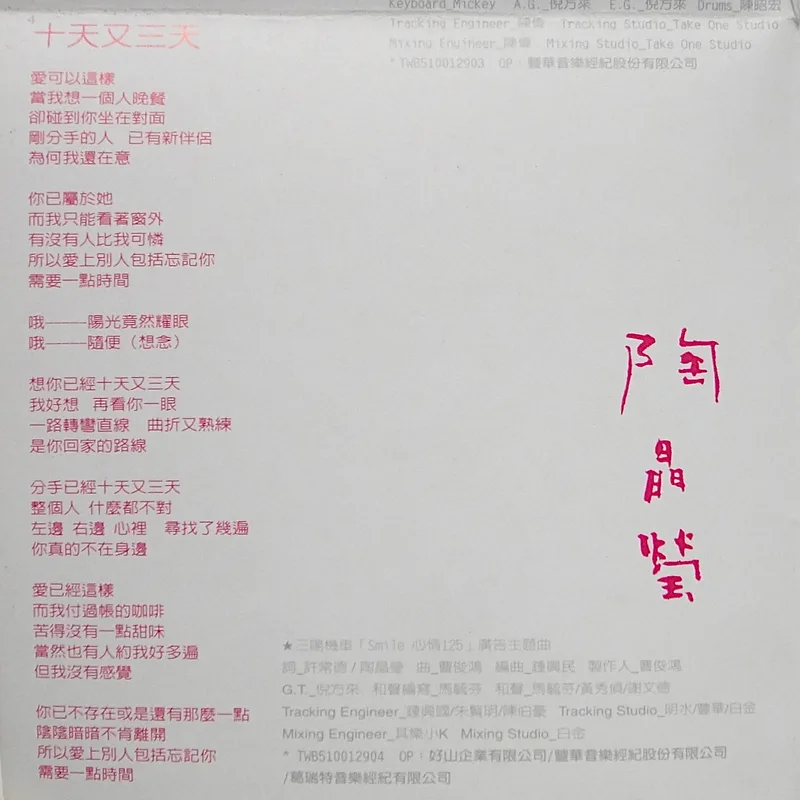 Keyboard_Mickey A.G._倪方來 E.G._倪方來 Drums_陳昭宏
Tracking Engineer_陳偉 Tracking Studio_Take One Studio
Mixing Engineer_陳偉 Mixing Studio_Take One Studio
*TWB510012903 OP：豐華音樂經紀股份有限公司
4
十天又三天
愛可以這樣
當我想一個人晚餐
卻碰到你坐在對面
剛分手的人 已有新伴侶
為何我還在意
你已屬於她
而我只能看著窗外
有沒有人比我可憐
所以愛上別人包括忘記你
需要一點時間
哦——陽光竟然耀眼
哦——隨便（想念）
想你已經十天又三天
我好想 再看你一眼
一路轉彎直線 曲折又熟練
是你回家的路線
分手已經十天又三天
整個人 什麼都不對
左邊 右邊 心裡 尋找了幾遍
你真的不在身邊
愛已經這樣
而我付過帳的咖啡
苦得沒有一點甜味
當然也有人約我好多遍
但我沒有感覺
你已不存在或是還有那麼一點
陰陰暗暗不肯離開
所以愛上別人包括忘記你
需要一點時間
陶
晶
瑩
★三陽機車「Smile 心情125」廣告主題曲
詞_許常德/陶晶瑩 曲_曹俊鴻 編曲_鍾興民 製作人_曹俊鴻
G.T._倪方來 和聲編寫_馬毓芬 和聲_馬毓芬/黃秀禎/謝文德
Tracking Engineer_鍾興國/朱賢明/陳伯豪 Tracking Studio_明水/豐華/白金
Mixing Engineer_具樂小K Mixing Studio_白金
* TWB510012904 OP：好山企業有限公司/豐華音樂經紀股份有限公司
/葛瑞特音樂經紀有限公司